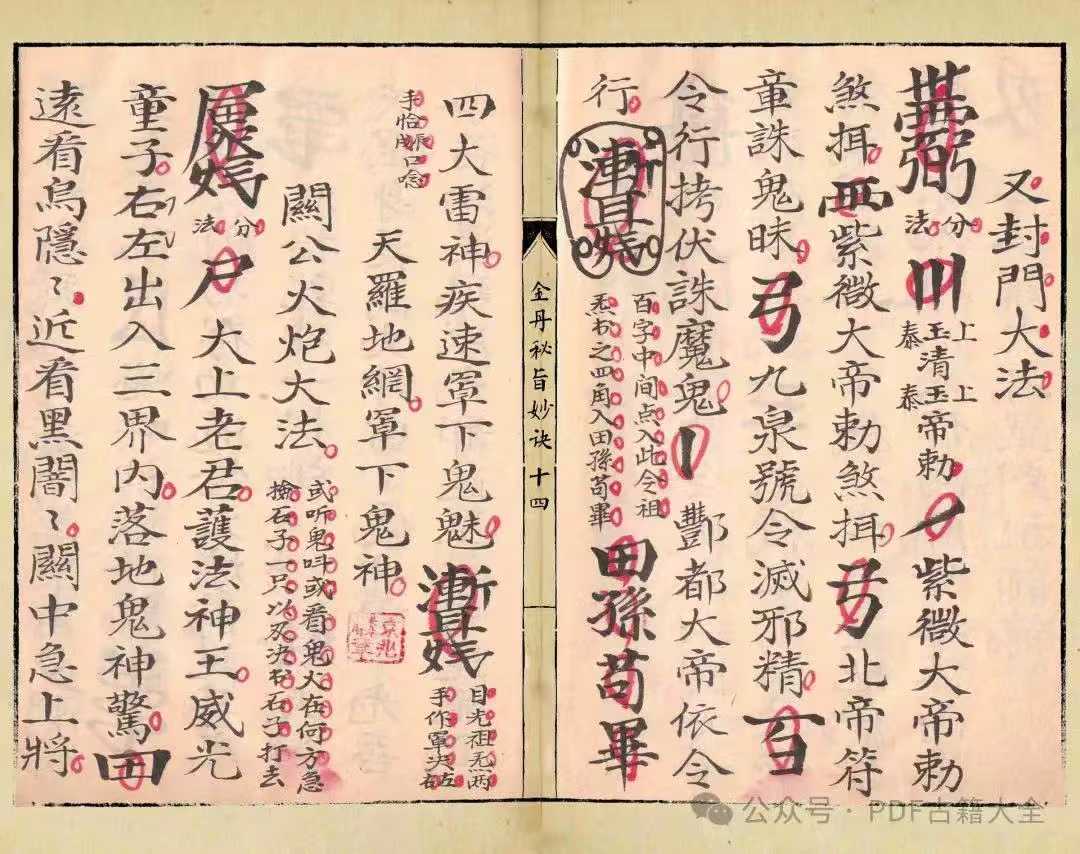 又封門大法
法分 川 上玉清玉上
泰 帝勅
泰 一紫微大帝勅
煞揖 西紫微大帝勅煞揖弓北帝符
童誅鬼昧弓九泉號令滅邪精百
令行拷伏誅魔鬼丨酆都大帝依令
行
百字中间点入此令祖
炁书之四角入田孫苟畢
田孫苟畢
金丹秘旨妙诀十四
四大雷神疾速罩下鬼魅
目光祖炁两
手作罩决左右
手掐辰
戌口唸
天羅地網罩下鬼神
關公火炮大法
或听鬼呌或看鬼火在何方急
撿石子一只以及决书石子打去
法分 尸大上老君護法神王威光
童子右左出入三界内落地鬼神驚田
遠看烏隱〻近看黑闇〻關中急上將
公众号·PDF古籍大全